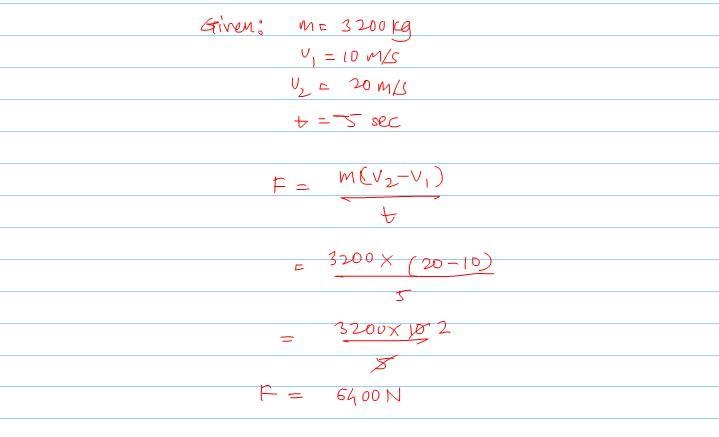 Given: m = 3200 kg
V₁ = 10 m/s
V₂ = 20 m/s
t = 5 sec
F = m(V₂-V₁) / t
= 3200 × (20-10) / 5
= 3200 × 10 2 / 5
F = 6400 N